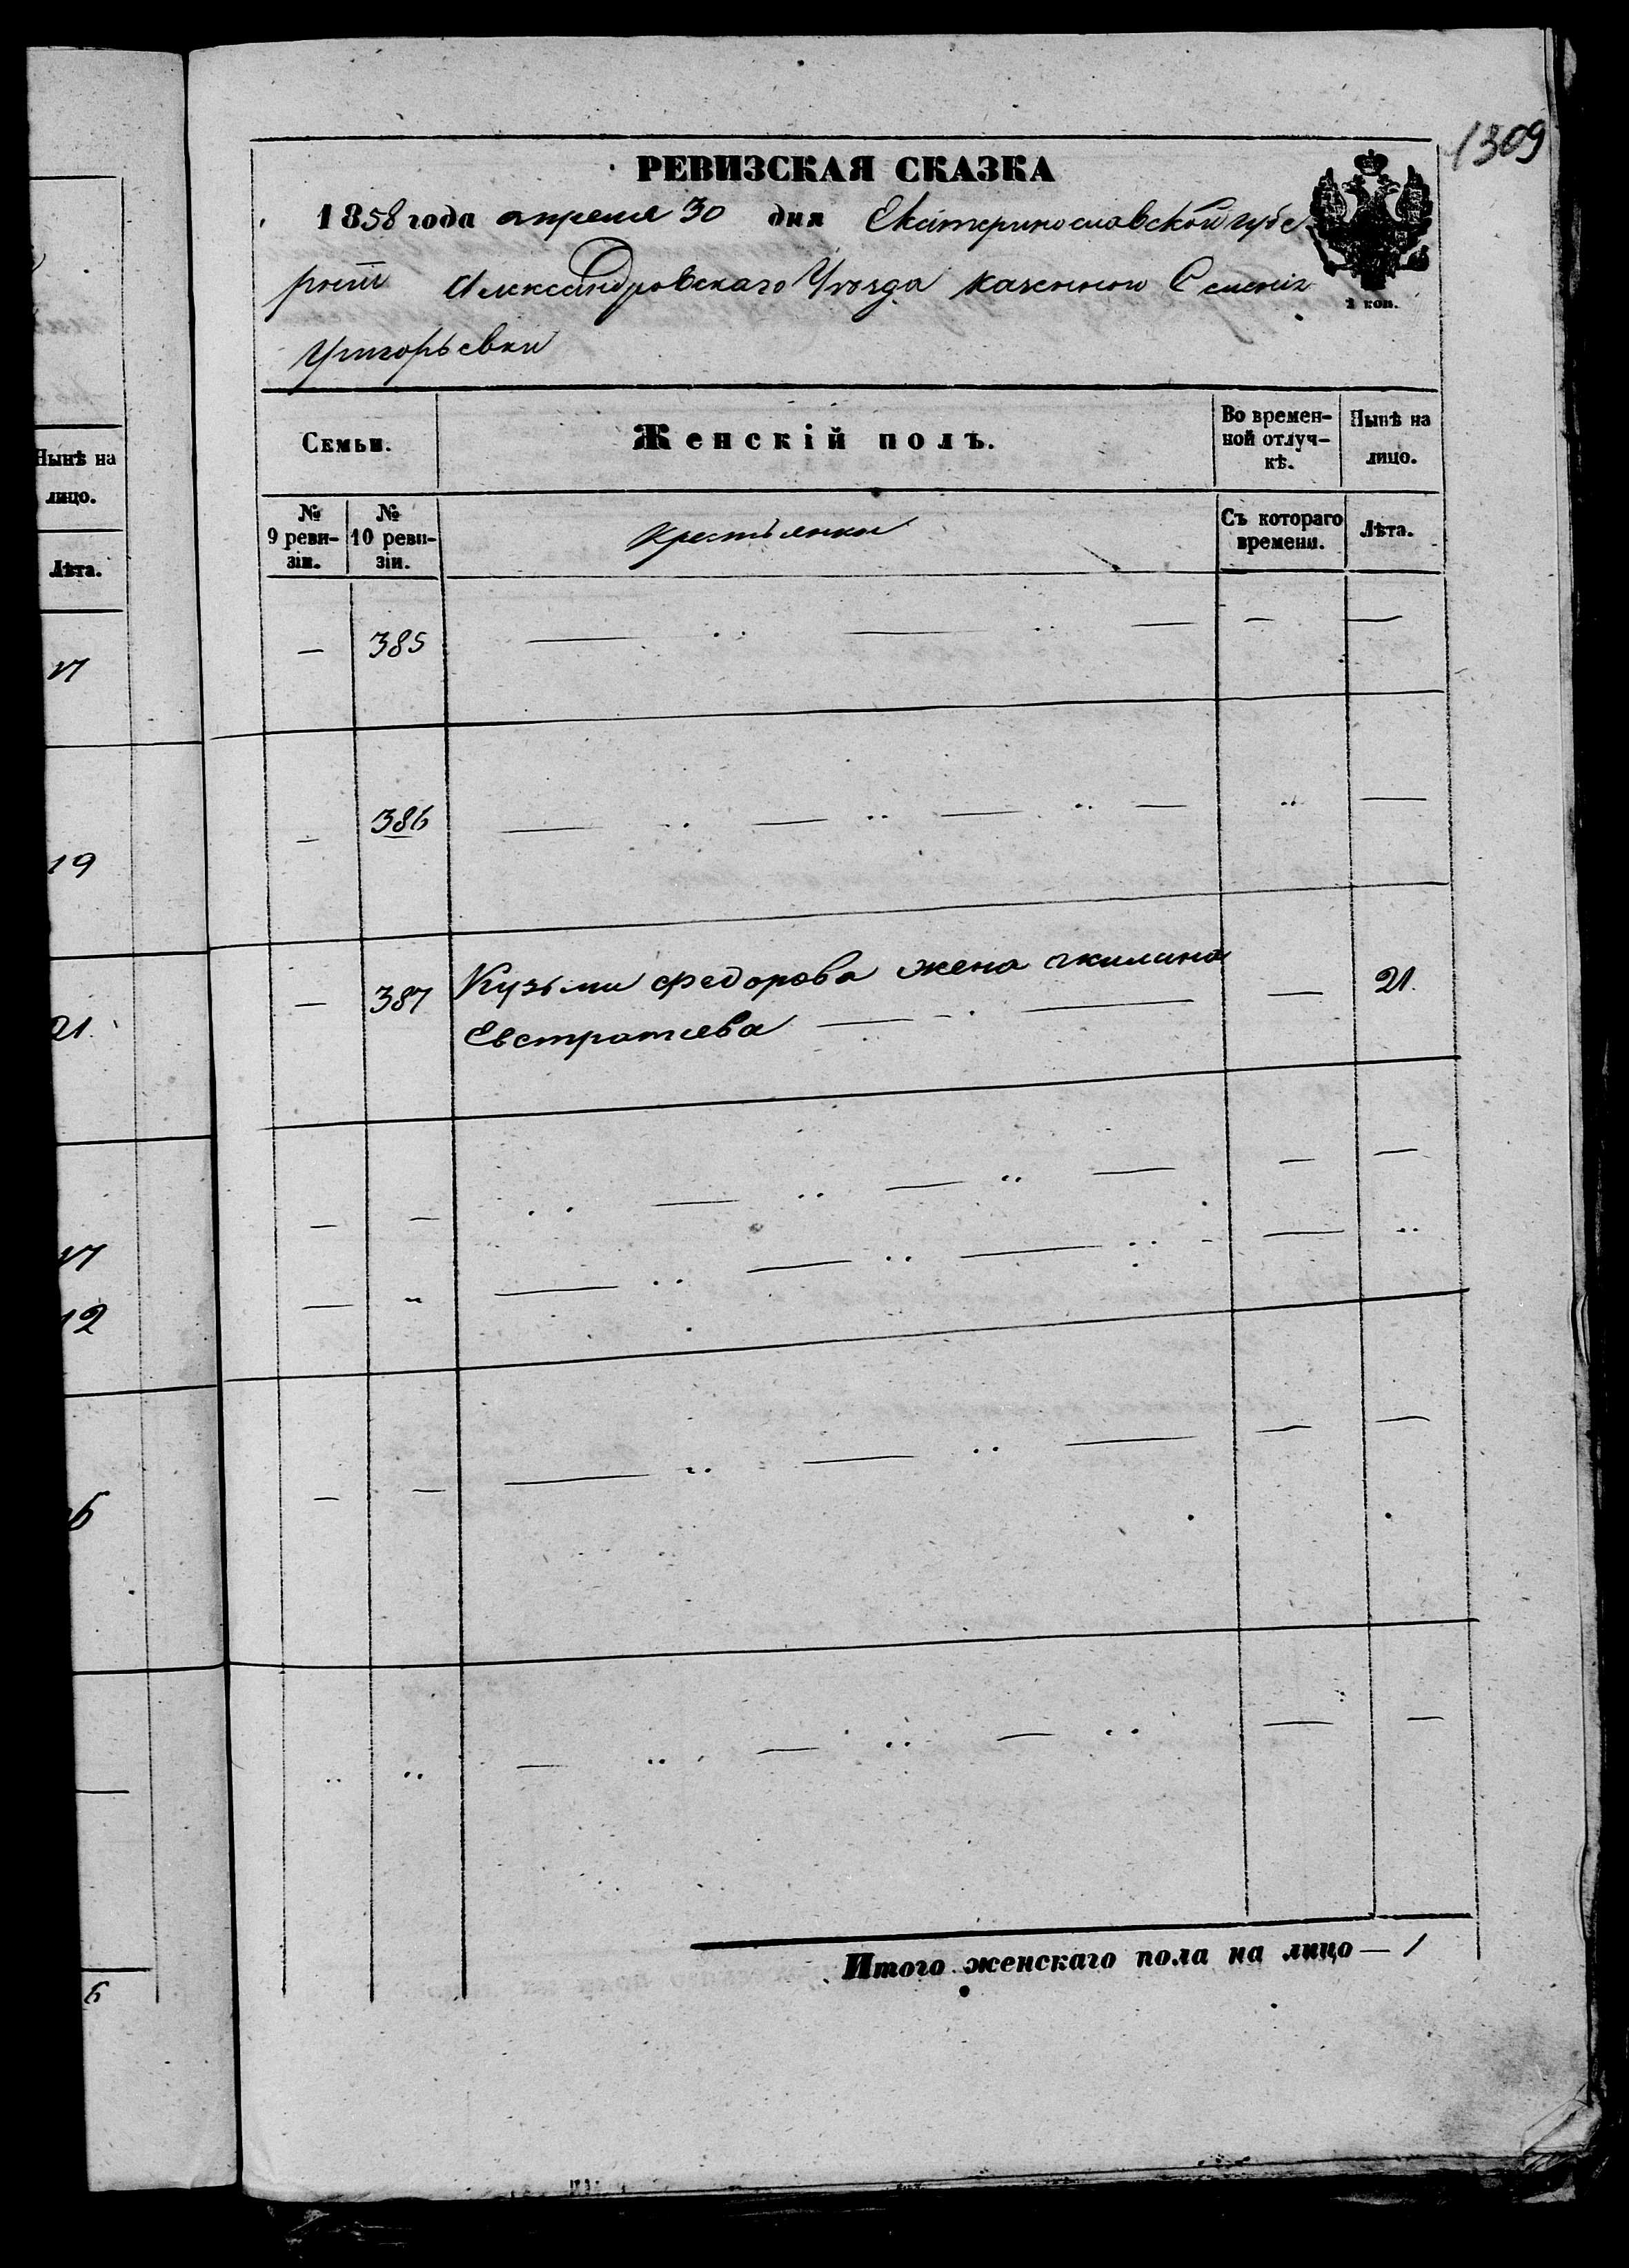 1309
РЕВИЗСКАЯ СКАЗКА
1858 года апреля 30 дня Екатеринославской губе
рнiи Александровскаго Уѣзда казенной Селенiя
Григорьевки
2 коп.
Семьи.
Женскій полъ.
Во времен-
ной отлуч-
кѣ.
Нынѣ на
лицо.
№
9 реви-
зіи.
№
10 реви-
зіи.
Крестьянки
Съ котораго
времени.
Лѣта.
— 385 — — — — —
— 386 — — — —
— 387 Кузьмы Федорова жена Акилина — 21.
Евстратiева — —
Итого женскаго пола на лицо — 1
Нынѣ на
лицо.
Лѣта.
17
19
21.
17
12
6
6